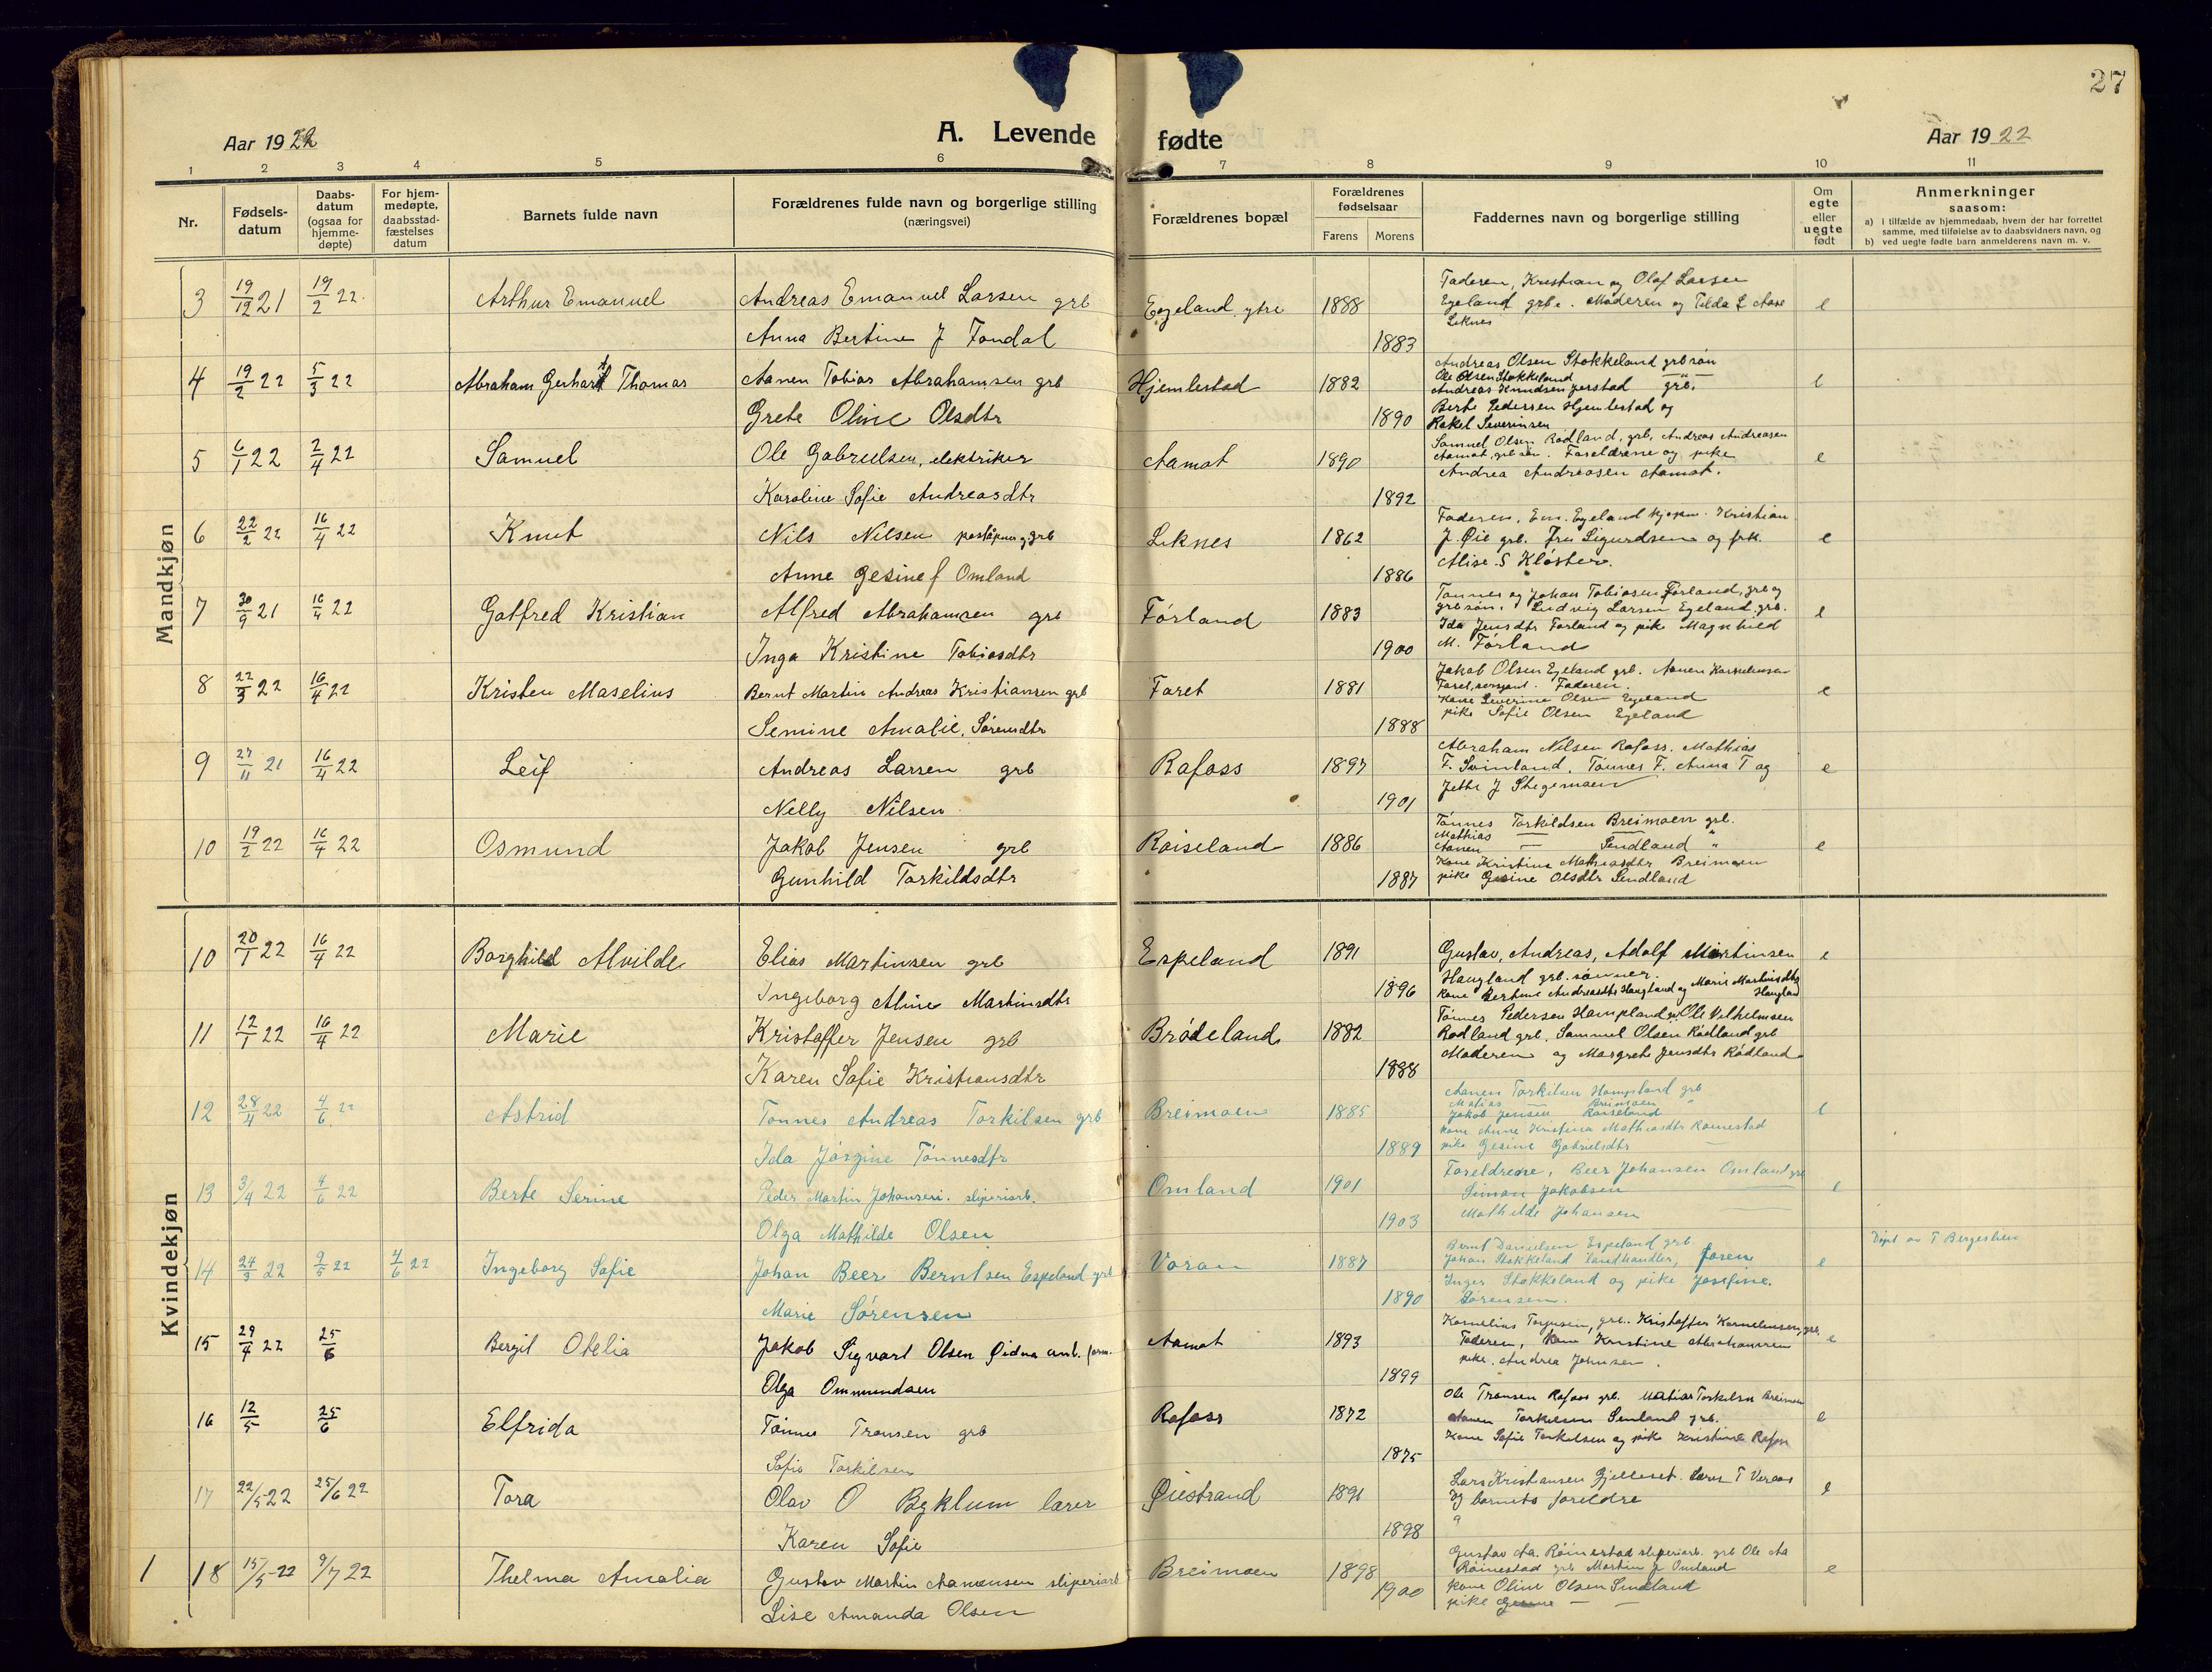 27
Aar 1922
A. Levende fødte
Aar 1922
1 2 3 4 5 6 7 8 9 10 11
Nr.
Fødsels-
datum
Daabs-
datum
(ogsaa for
hjemme-
døpte)
For hjem-
medøpte,
daabsstad-
fæstelses
datum
Barnets fulde navn
Forældrenes fulde navn og borgerlige stilling
(næringsvei)
Forældrenes bopæl
Forældrenes
fødselsaar
Farens Morens
Faddernes navn og borgerlige stilling
Om
egte
eller
uegte
født
Anmerkninger
saasom:
a) i tilfælde av hjemmedaab, hvem der har forrettet
samme, med tilføielse av to daabsvidners navn, og
b) ved uegte fødte barn anmelderens navn m. v.
Mandkjøn
3 19/12 21 19/2 22. Arthur Emanuel Andreas Emanuel Larsen grb Egeland ytre 1888 e
Anna Bertine J Fondal 1883
Faderen, Kristian og Olaf Larsen
Egeland grb. Moderen og Tilda L Aase
Leknes
4 19/2 22 5/3 22 Abraham Gerhard Thomas Aanen Tobias Abrahamsen grb Hjemlestad 1882 e
Grete Oline Olsdtr 1890
Andreas Olsen Stokkeland grb søn
Ole Olsen Stokkeland
Andreas Knudsen Jerstad grb.
Berte Pedersen Hjemlestad og
Rakel Severinsen
5 6/1 22 2/4 22 Samuel Ole Gabrielsen, elektriker Aamot 1890 e
Karoline Sofie Andreasdtr 1892
Samuel Olsen Rødland, grb, Andreas Andreasen
Aamot, grb søn. Foreldrene og pike
Andrea Andreasen Aamot.
6 22/2 22 16/4 22 Knut Nils Nilsen postaapner og grb Leknes 1862 e
Anne Gesine J Omland 1886
Faderen, Em. Egeland kjøpm. Kristian
J. Øie grb. Fru Sigurdsen og frk.
Alise S Kloster.
7 30/9 21 16/4 22 Gotfred Kristian Alfred Abrahamsen grb Førland 1883 e
Inga Kristine Tobiasdtr 1900
Tønnes og Johan Tobiasen Førland, grb og
grb søn. Ludvig Larsen Egeland, grb.
Ida Jensdtr Førland og pike Magnhild
M. Førland
8 22/3 22 16/4 22 Kristen Maselius Bernt Martin Andreas Kristiansen grb Faret 1881 e
Semine Amalie, Sørensdtr 1888
Jakob Olsen Egeland grb. Aanen Kornelius
Faret, sersjant. Faderen.
Kone Severine Olsen Egeland
pike Sofie Olsen Egeland
9 27/11 21 16/4 22 Leif Andreas Larsen grb Rafoss 1897 e
Nelly Nilsen 1901
Abraham Nilsen Rafoss. Mathias
F. Svinland. Tønnes F. Anna T og
Jette J Stegemoen
10 19/2 22 16/4 22 Osmund Jakob Jensen grb Røiseland 1886 e
Gunhild Torkildsdtr 1887
Tønnes Torkildsen Breimoen grb.
Mathias — —
Aanen — Sindland "
Kone Kristine Mathiasdtr Breimoen
pike Gesine Olsdtr Sindland
Kvindekjøn
10 20/1 22 16/4 22 Borghild Alvilde Elias Martinsen grb Espeland 1891 e
Ingeborg Aline Martinsdtr 1896
Gustav, Andreas, Adolf Martinsen
Haugland grb. sønner.
Kone Bertine Andreasdtr Haugland og Marie Martinsdtr
Haugland
11 12/1 22 16/4 22 Marie Kristoffer Jensen grb Brødeland 1882
Karen Sofie Kristiansdtr 1888
Tønnes Pedersen Hampland og Ole Vilhelmsen
Rødland grb. Sammel Olsen Rødland grb
Moderen og Margrete Jensdtr Rødland
12 28/4 22 4/6 22 Astrid Tønnes Andreas Torkilsen grb Breimoen 1885 e
Ida Jørgine Tønnesdtr 1889
Aanen Torkilsen Hampland grb
Matias — Breimoen "
Jakob Jensen Røiseland
Kone Anne Kristina Mathiasdtr Rømestad
pike Gesine Gabrielsdtr —
13 3/4 22 4/6 22 Berte Serine Peder Martin Johansen. sliperiarb. Omland 1901 e
Olga Mathilde Olsen 1903
Foreldrene, Beer Johansen Omland grb
Simon Jakobsen —
Mathilde Johansen —
14 24/3 22 9/5 22 4/6 22 Ingeborg Sofie Johan Beer Berntsen Espeland grb Voran 1887 e
Marie Sørensen 1890
Bernt Danielsen Espeland grb.
Johan Stokkeland landhandler,
Inger Stokkeland og pike Josefine
Sørensen.
Døpt av T Bergeslien
15 29/4 22 25/6 Bergit Otelia Jakob Sigvart Olsen Øidna anl. form. Aamot 1893 e
Olga Ommundsen 1899
Kornelius Torjusen, grb. Kristoffer Korneliussen, grb.
Faderen, kone Kristine Abrahamsen
pike. Andrea Johnsen.
16 12/5 25/6 Elfrida Tønnes Tronsen grb Rafoss 1872 e
Sofie Torkilsen 1875
Ole Tronsen Rafoss grb. Matias Torkilsen Breimoen
Aanen Torkilsen Sinland grb.
Kone Sofie Torkelsen og pike Kristine Rafoss
17 22/5 22 25/6 22 Tora Olav O Byklum lærer Øiestrand 1891 e
Karen Sofie 1898
Lars Kristiansen Gjelleset. lærer T Veraas
og barnets foreldre
1 18 15/5 22 9/7 22 Thelma Amalia Gustav Martin Aamonsen sliperiarb Breimoen 1898 e
Lise Amanda Olsen 1900
Gustav Aa. Røinestad sliperiarb. grb Ole Aa
Røinestad grb Martin J Omland
Kone Oline Olsen Sindland
pike Gesine — —